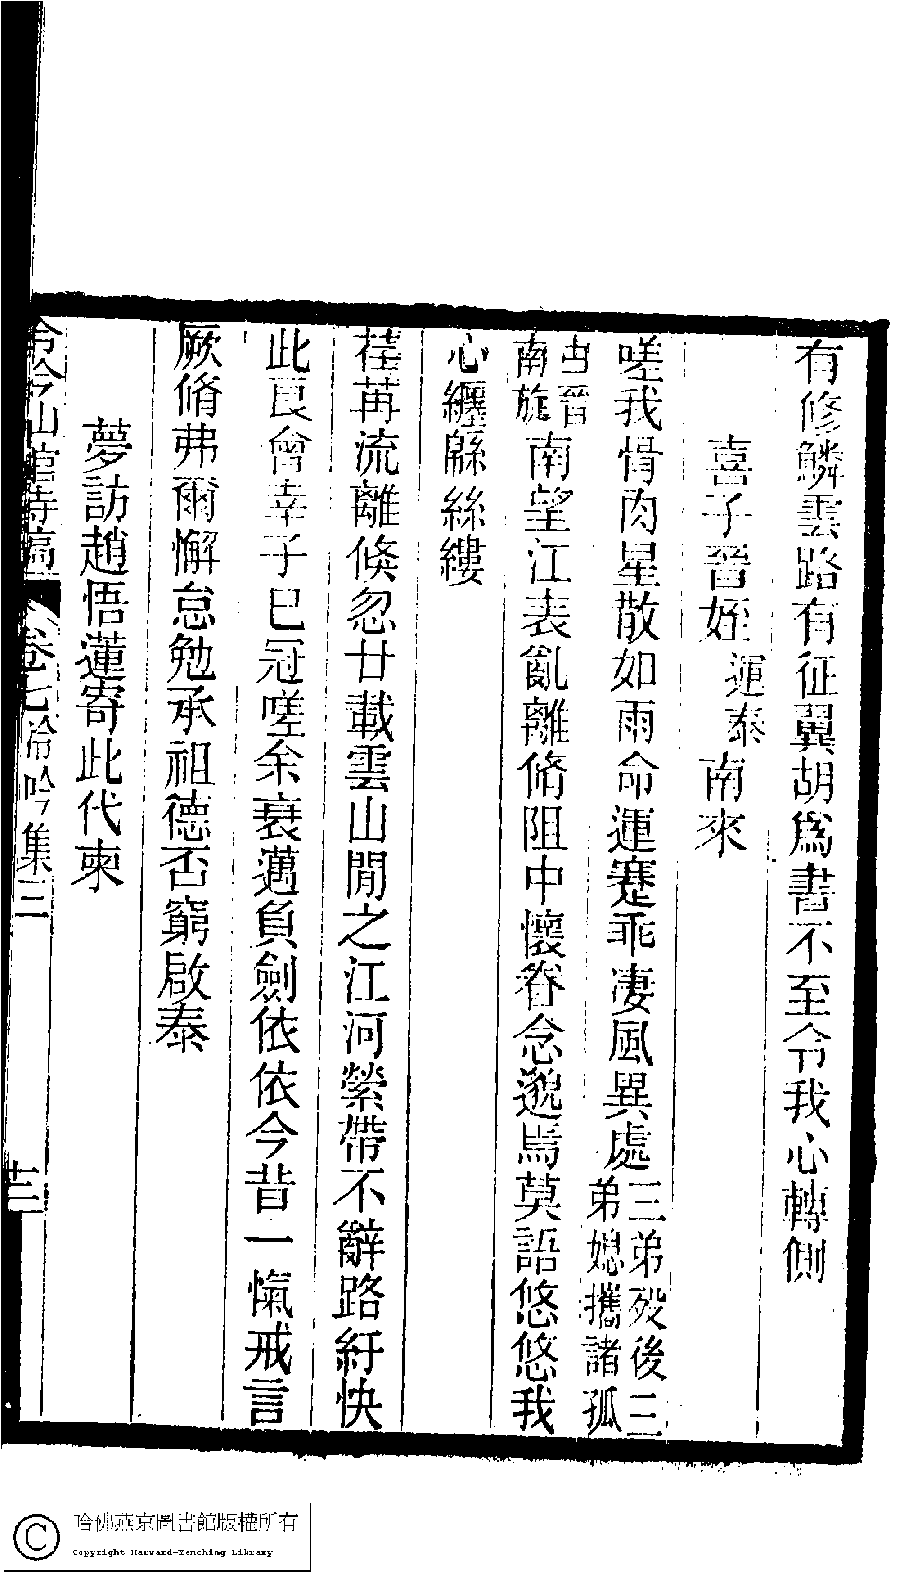 有修鱗雲路有征翼胡爲書不至令我心轉側
喜子晉姪運泰南來
嗟我骨肉星散如雨命運蹇乖凄風異處三弟歿後三弟媳攜諸孤
由晉南旋南望江表亂離脩阻中懷眷念邈焉莫語悠悠我
心纏緜絲縷
荏苒流離倏忽廿載雲山閒之江河縈帶不辭路紆快
此良會幸子已冠嗟余衰邁負劍依依今昔一愾戒言
厥脩弗爾懈怠勉承祖德否窮啟泰
夢訪趙悟蓮寄此代柬
冷吟山館詩稿 卷七冷吟集三 十三
哈佛燕京圖書館版權所有
Copyright Harvard-Yenching Library